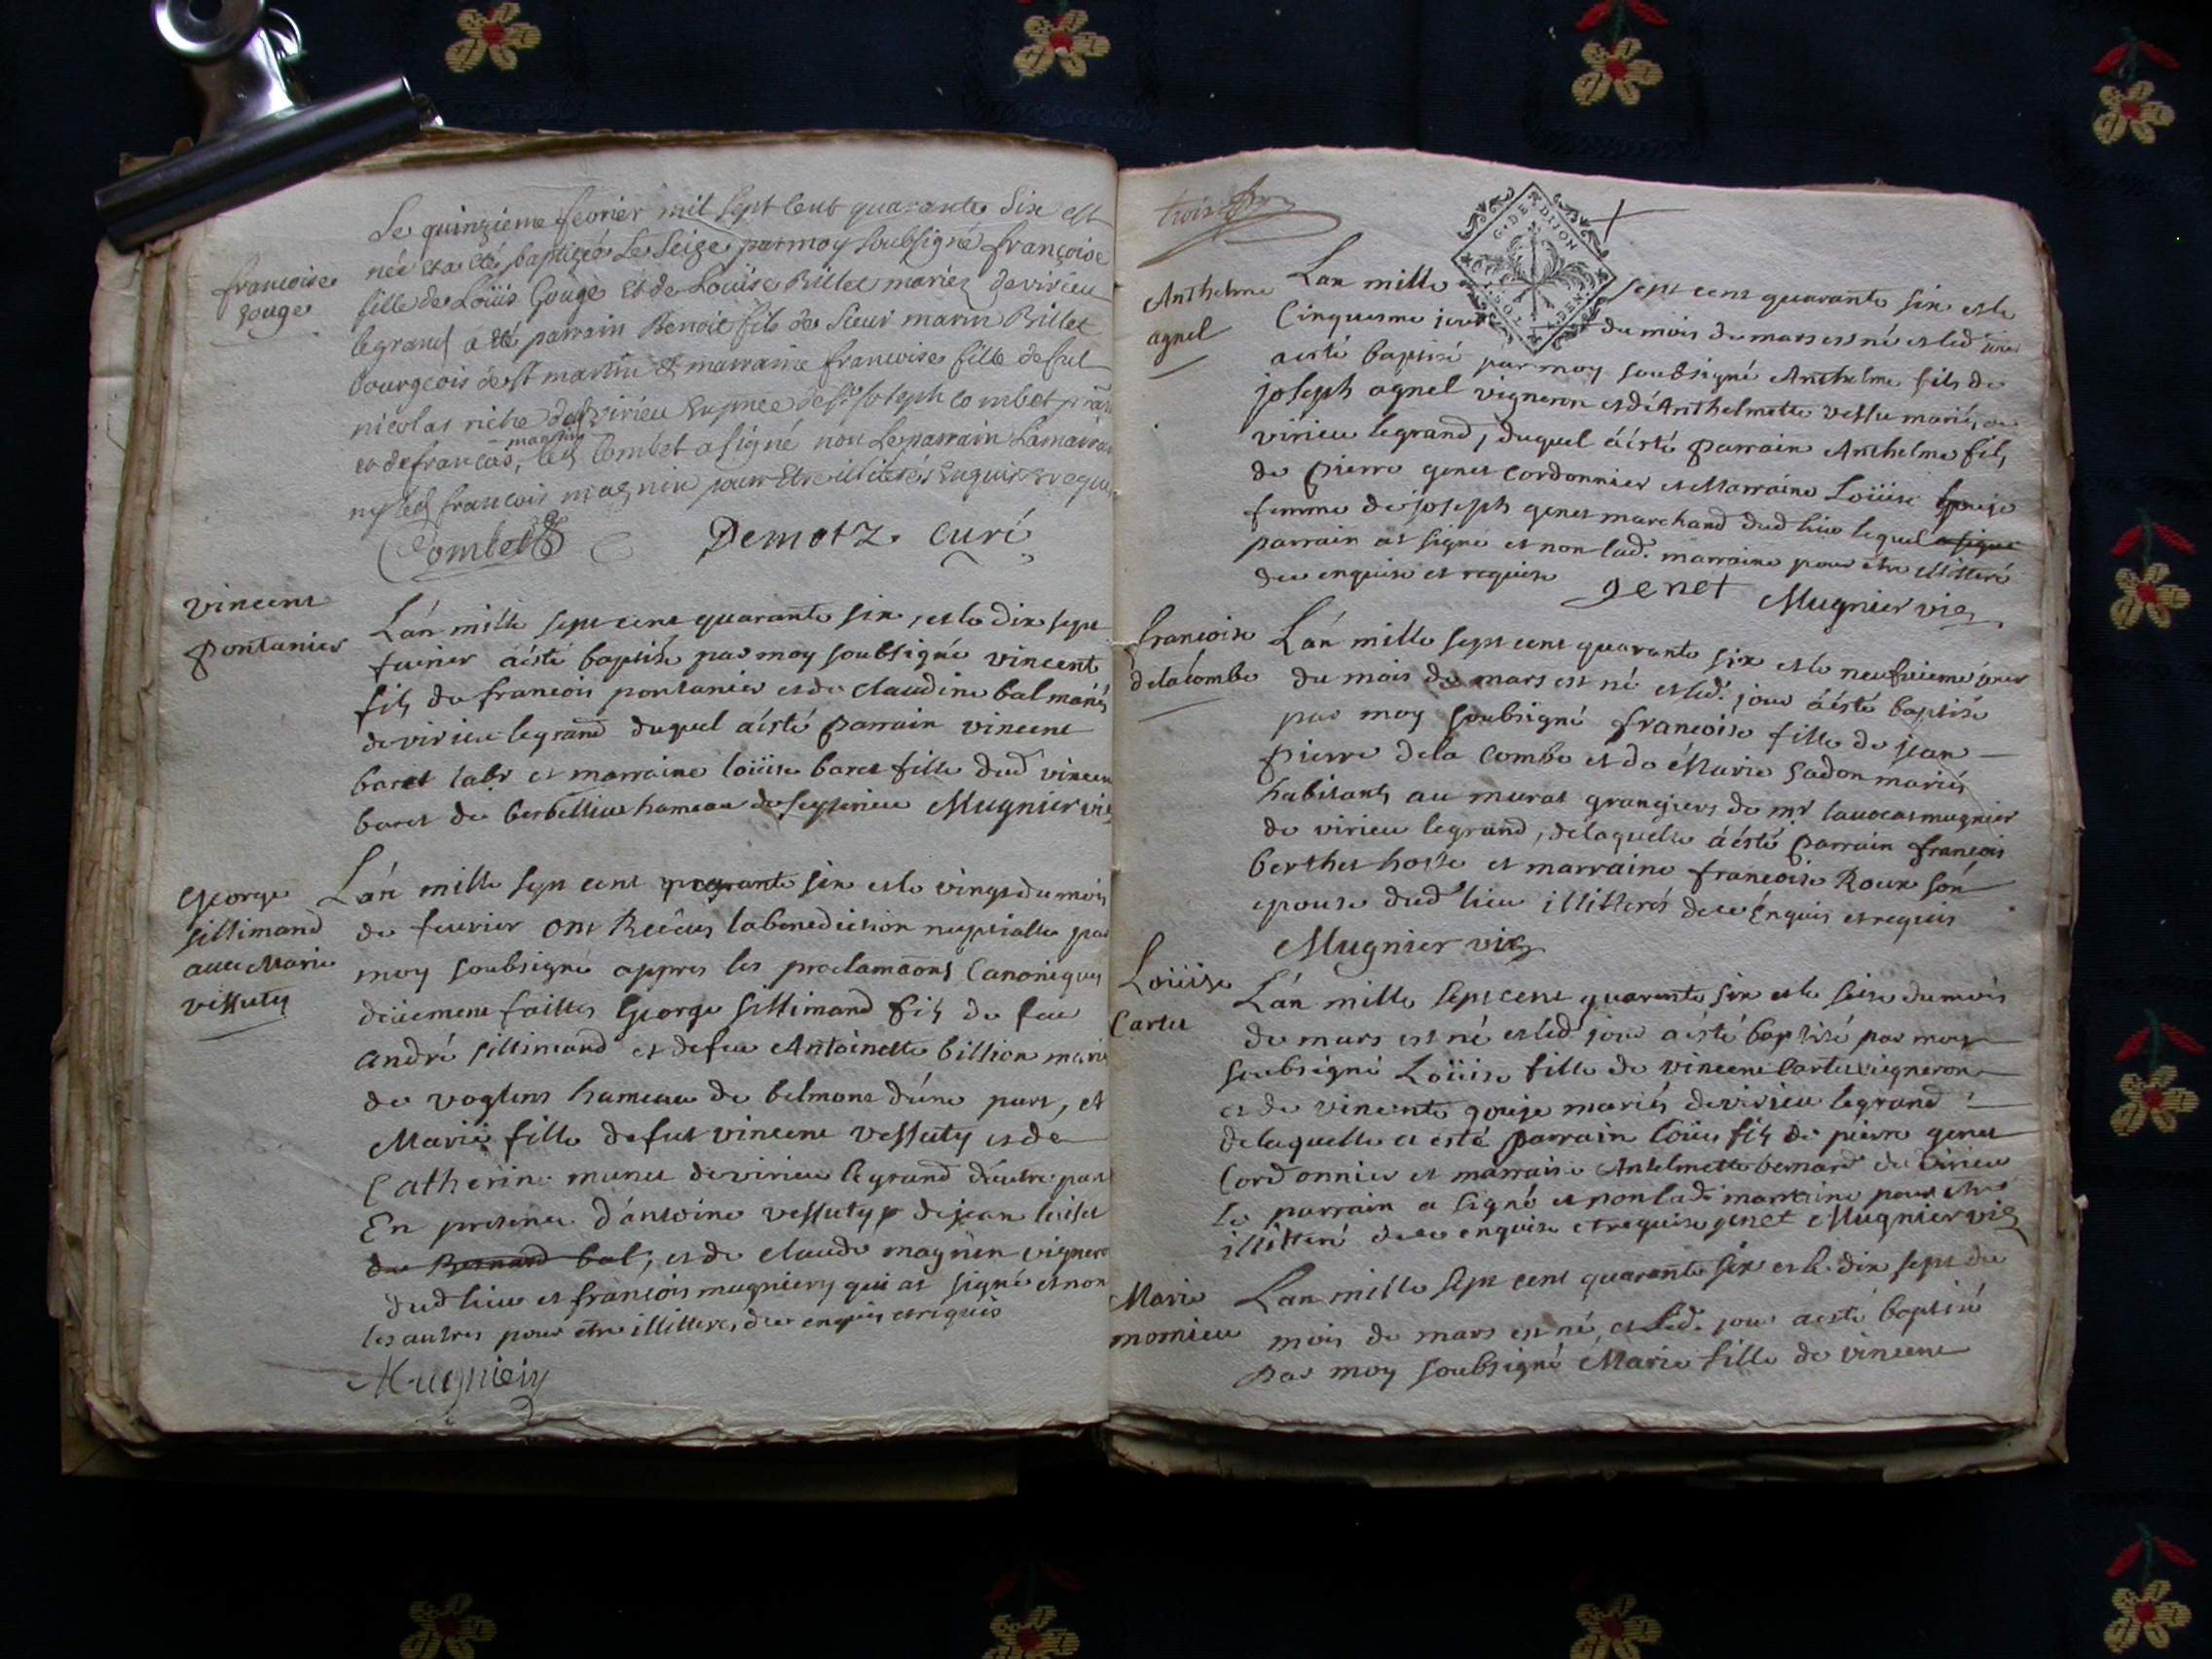 Le quinzieme feevrier mil sept cent quarante Six est
francoise
gouge
née et a eté baptizée Le Seize par moy soubsigné francoise
fille de Loüis Gouge et de Louise Billet mariez de virieu
legrand a eté parrain Benoit fils de Sieur marin Billet
bourgeois de st martin et marraine francoise fille de fut
nicolas riche de virieu
et de francois, led Combet a signé non Le parrain La marrai
magnin
ny led francois magnin pour Etre illiterés Enquis
Combet Demotz. curé
vincent
pontanier
Lán mille sept cent quarante six, et le dix sept
fevrier áésté baptisé par moy soubsigné vincent
fils de francois pontanier et de claudine bal mariés
de virieu legrand duquel aésté parrain vincent
baret labr et marraine loüise baret fille dud vincen
baret de berbellieu hameau de seyserieu Mugnier vic
George
sillimand
avec Marie
vessuty
Lán mille sept cent quarante six et le vingt du mois
de fevrier ont Reçeus la benediction nuptialle par
moy soubsigné appres les proclamaons Canoniques
deüement faittes George sillimand fils de feu
André sillimand et de feu Antoinette billion marie
de voglens hameau de belmont d'une part, et
Marie fille de fut vincent vessuty et de
Catherine munet de virieu le grand dautre part
En presence d'antoine vessuty de jean loisel
de Bernard bal, et de claude magnin vigner
dud lieu et francois mugniery qui at signé et non
les autres pour etre illitteres, de ce enquis et requis
Mugniery
trois
G. DE DIJON
Anthelme
agnel
Lan mille sept cent quarante six et le
Cinquesme jour du mois de mars est né et led jour
aesté baptisé par moy soubsigné Anthelme fils de
joseph agnel vigneron et dé Anthelmette vessu mariés de
virieu legrand, duquel áésté parrain Anthelme fils
de pierre genet cordonnier et Marraine Loüise gouje
femme de joseph genet marchand dud lieu lequel a signé
parrain at signé et non lad. marraine pour étre illitteré
de ce enquise et requise genet Mugnier vic
francoise
delacombe
Lán mille sept cent quarante six et le neufvieme jour
du mois de mars est né et led. jour áésté baptisé
par moy soubsigné francoise fille de jean
pierre dela combe et de Marie sadon mariés
habitants au murat grangiers de mr lavocat mugnier
de virieu legrand, delaquelle áésté parrain francois
berthet hoste et marraine francoise Roux són
epouse dud lieu illitterés de ce Enquis et requis
Mugnier vic
Loüise
Cartet
Lán mille sept cent quarante six et le seise du mois
de mars est né et led jour aésté baptisé par moy
soubsigné Loüise fille de vincent Cartet vigneron
et de vincente gouje mariés de virieu legrand
delaquelle at esté parrain loüis fils de pierre genet
Cordonnier et marraine Antelmette bernard de virieu
le parrain a signé et non lad. marraine pour étre
illitteré de ce enquise et requise genet Mugnier vic
Marie
momieu
Lan mille sept cent quarante six et le dix sept du
mois de mars est né, et led. jour aesté baptisé
par moy soubsigné Marie fille de vincent